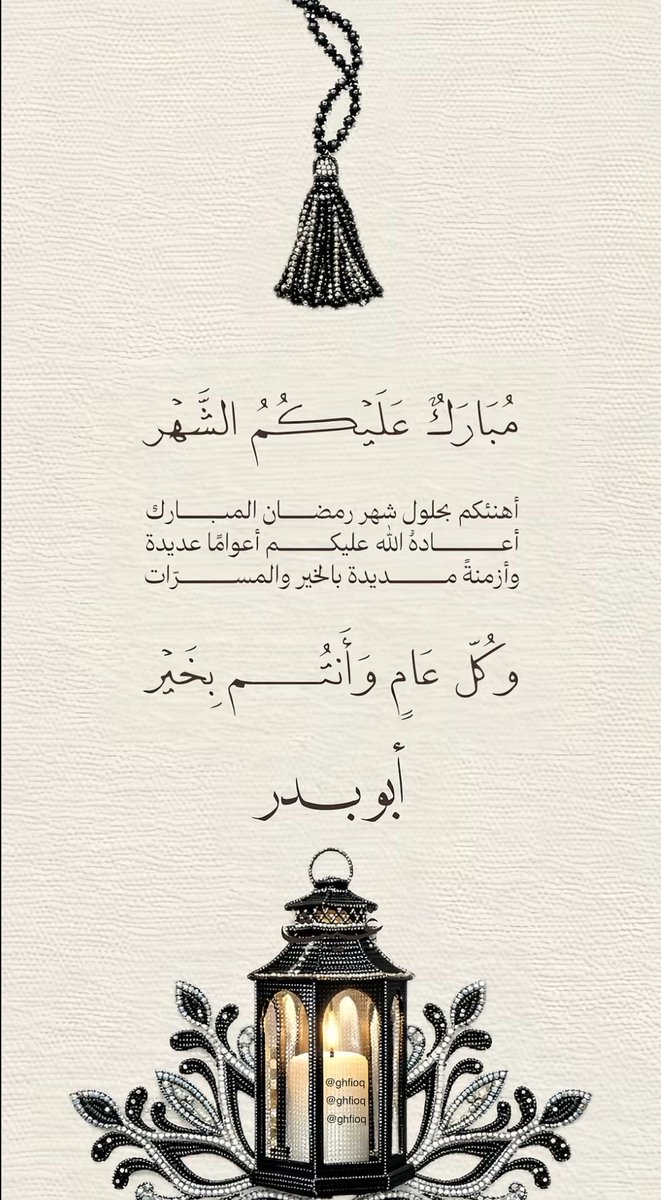 مُبَارَكٌ عَلَيْكُمُ الشَّهْر
أهنئكم بحلول شهر رمضـــان المبـــارك
أعـــادهُ الله عليكـــم أعوامًا عديدة
وأزمنةً مـــديدة بالخير والمســـرّات
وَكُلّ عَامٍ وَأَنتُـــم بِخَيْر
أبو بـدر
@ghfioq
@ghfioq
@ghfioq